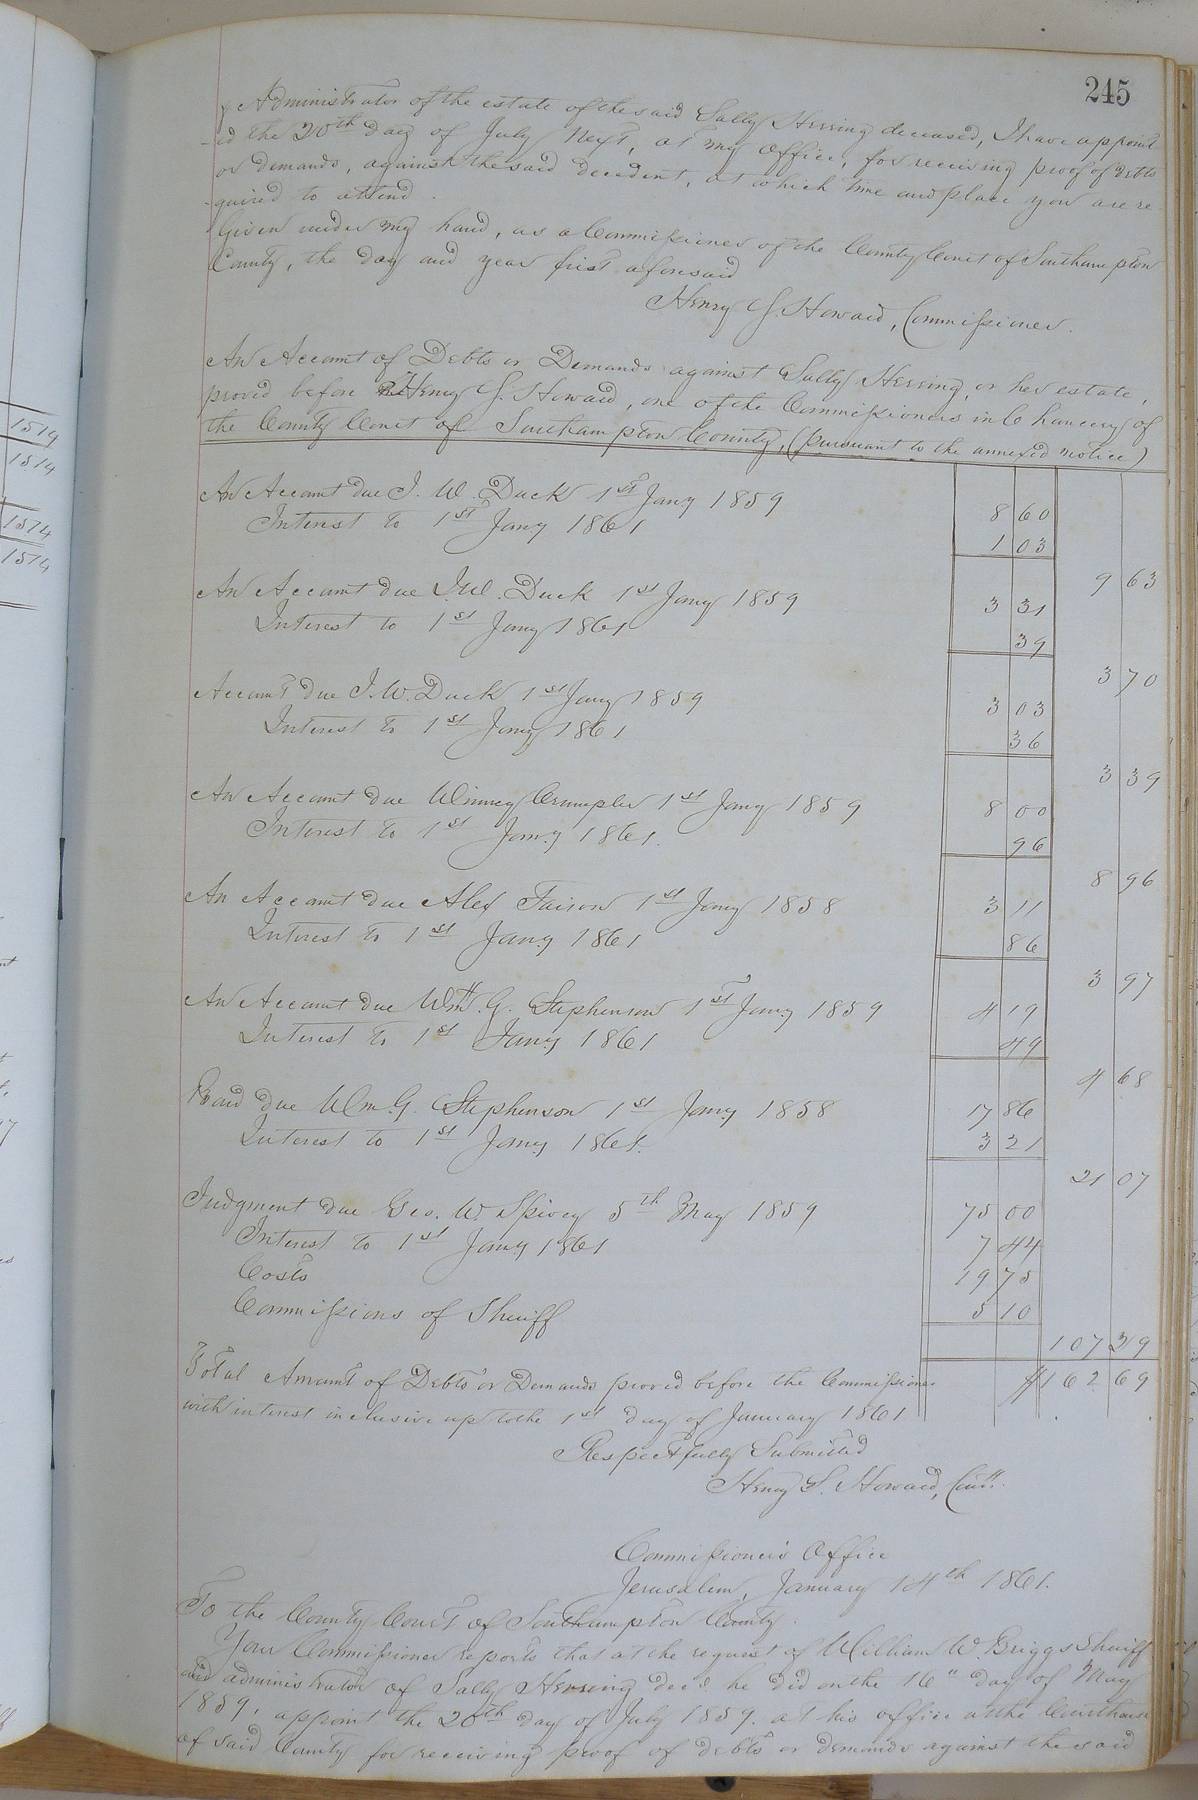 245
& Administrator of the estate of the said Sally Herring deceased, I have appoint
-ed the 20th day of July next, at my office, for receiving proof of debts
or demands, against the said decedent, at which time and place you are re
-quired to attend.
Given under my hand, as a Commissioner of the County Court of Southampton
County, the day and year first aforesaid
Henry S. Howard, Commissioner.
An Account of Debts or Demands against Sally Herring, or her estate,
proved before Henry S. Howard, one of the Commissioners in Chancery of
the County Court of Southampton County, (pursuant to the annexed notice)
An Account due J. W. Duck 1st Jany 1859 8 60
Interest to 1st Jany 1861 1 03
9 63
An Account due J. W. Duck 1st Jany 1859 3 31
Interest to 1st Jany 1861 39
3 70
Account due J. W. Duck 1st Jany 1859 3 03
Interest to 1st Jany 1861 36
3 39
An Account due Winney Crumpler 1st Jany 1859 8 00
Interest to 1st Jany 1861. 96
8 96
An Account due Alex Faison 1st Jany 1858 3 11
Interest to 1st Jany 1861 86
3 97
An Account due Wm. G. Stephenson 1st Jany 1859 4 19
Interest to 1st Jany 1861 49
4 68
due Wm. G. Stephenson 1st Jany 1858 17 86
Interest to 1st Jany 1861. 3 21
21 07
Judgment due Geo. W. Spivey 5th May 1859 75 00
Interest to 1st Jany 1861 7 44
Costs 19 75
Commissions of Sheriff 5 10
107 29
Total Amount of Debts or Demands proved before the Commissioner $162 69
with interest inclusive up to the 1st day of January 1861
Respectfully Submitted
Henry S. Howard, Comr.
Commissioner's Office
Jerusalem, January 14th 1861.
To the County Court of Southampton County.
Your Commissioner reports that at the request of William W. Briggs Sheriff
and administrator of Sally Herring decd. he did on the 16" day of May
1859, appoint the 20th day of July 1859. at his office at the Courthouse
of said County for receiving proof of debts or demands against the said
1514
1514
1514
1514